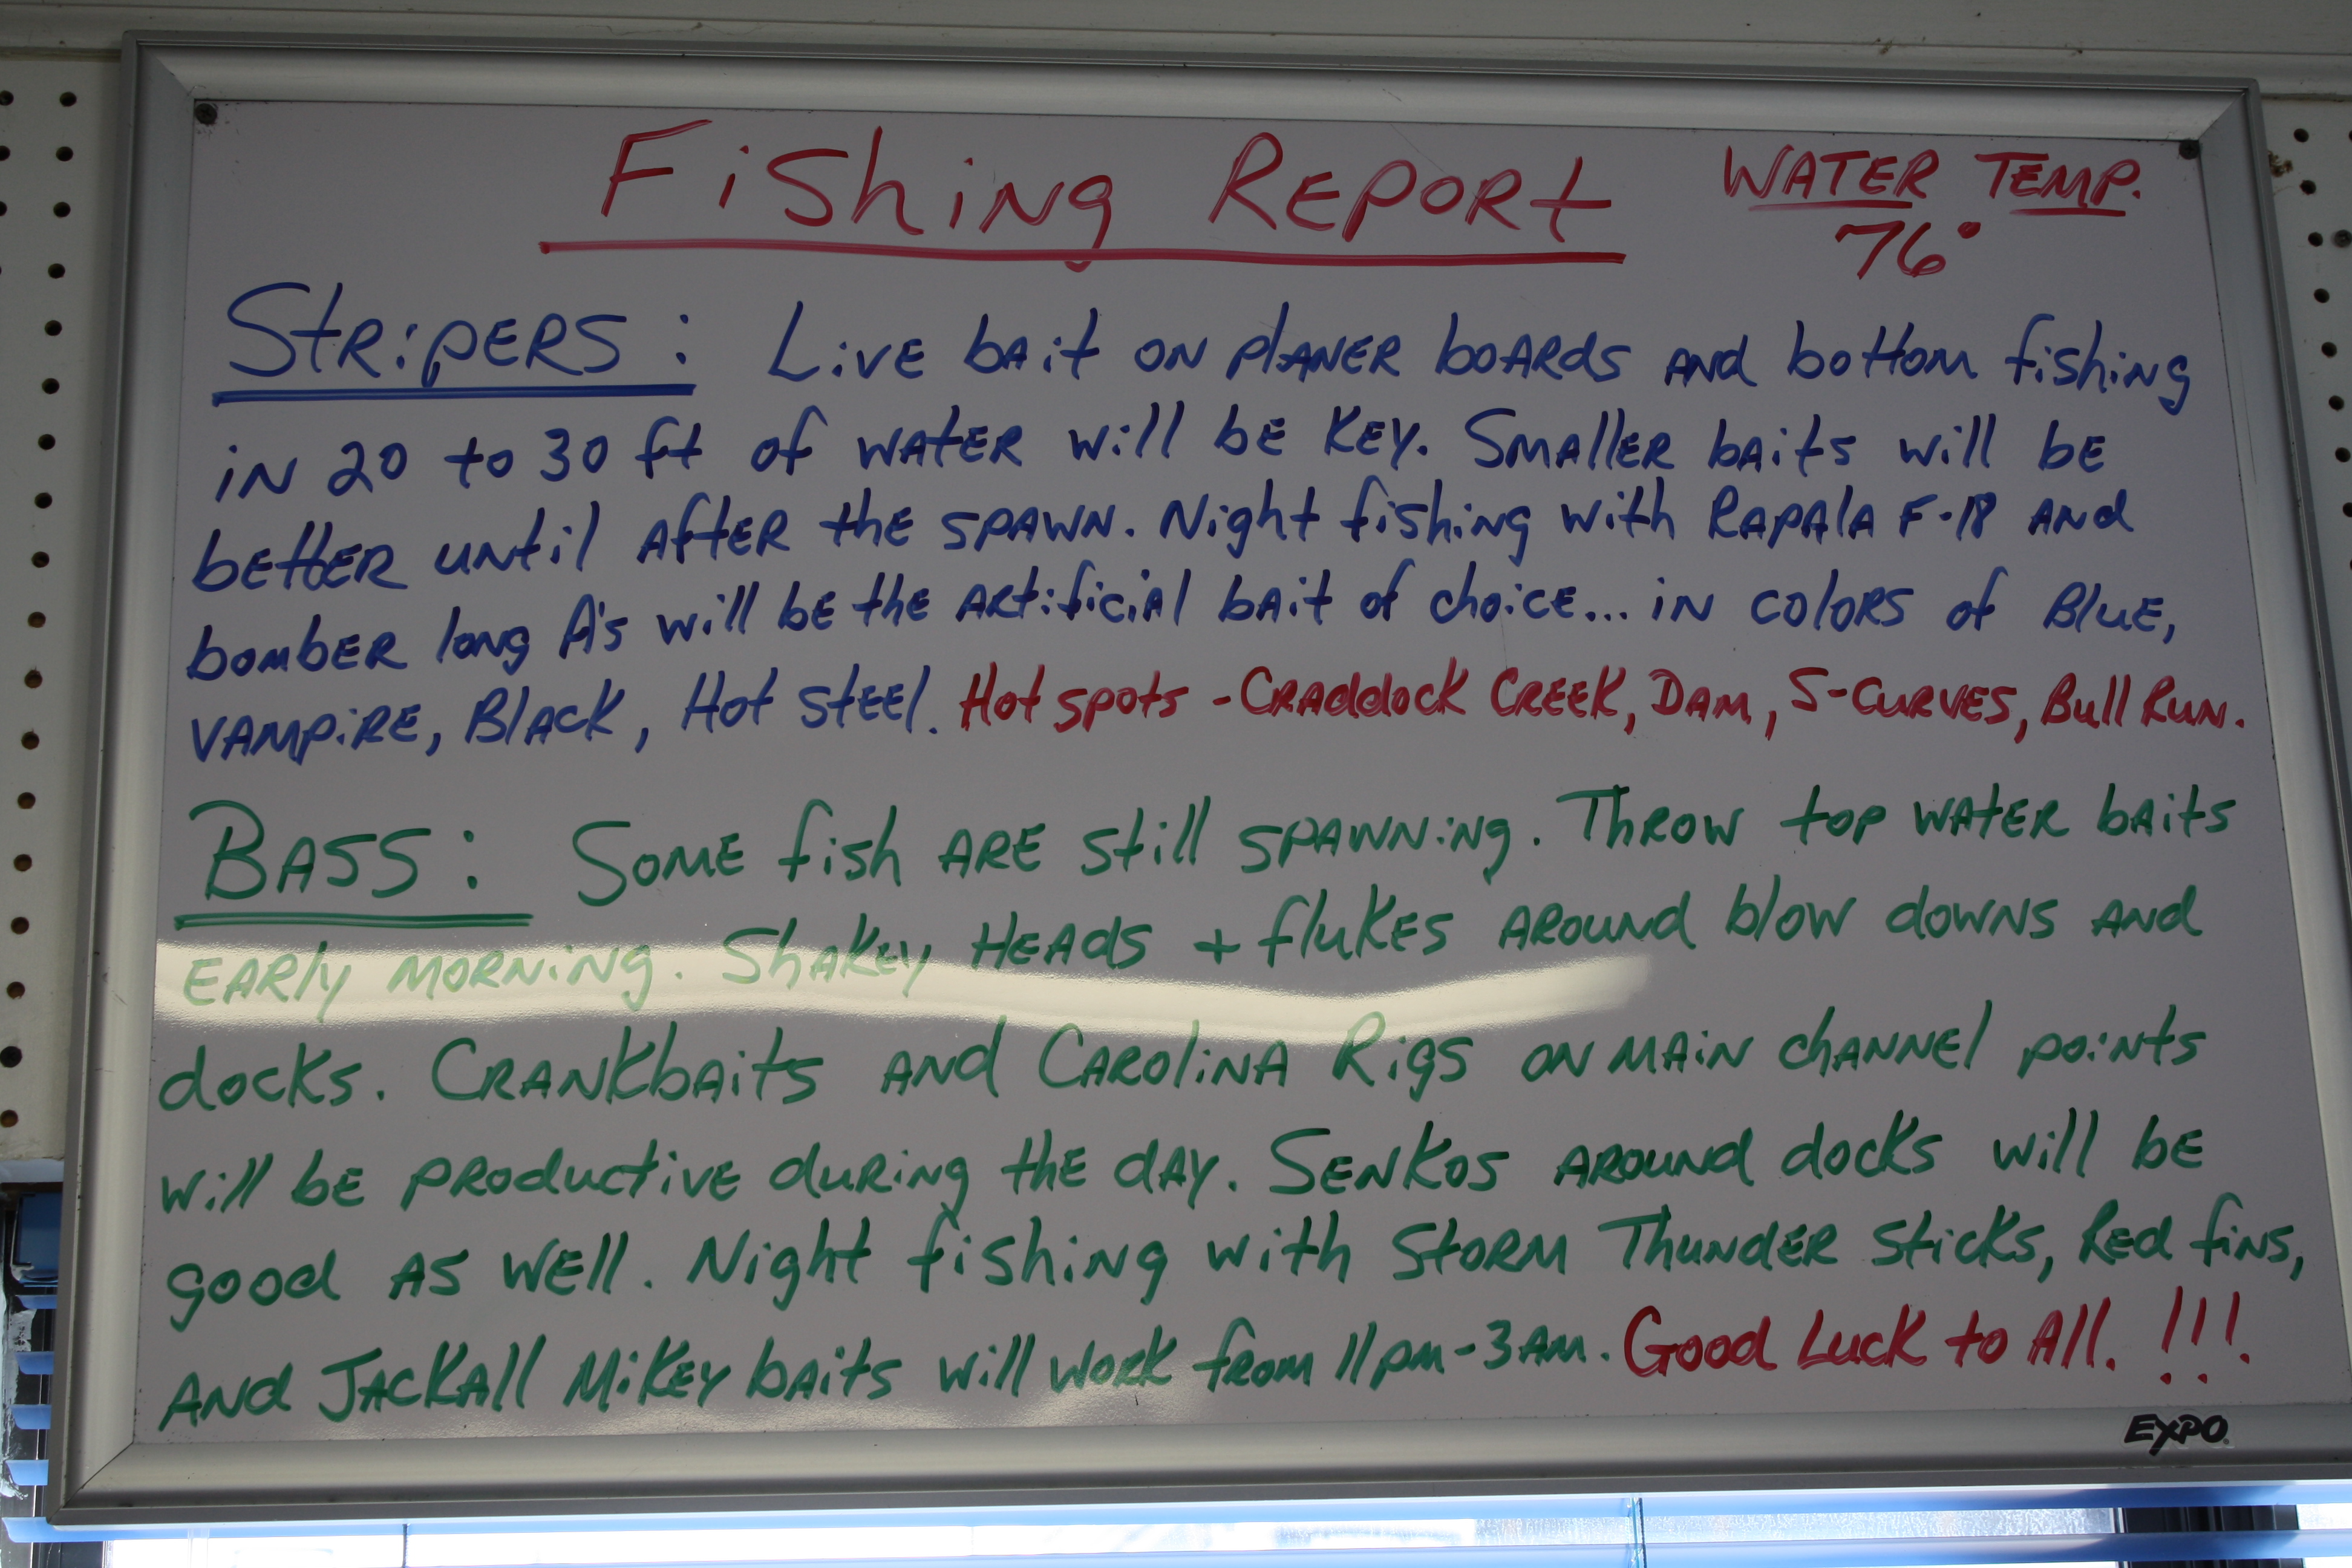 Fishing Report
Water Temp.
76°
Stripers: Live bait on planer boards and bottom fishing
in 20 to 30 ft of water will be key. Smaller baits will be
better until after the spawn. Night fishing with Rapala F-18 and
bomber long A's will be the artificial bait of choice... in colors of Blue,
vampire, Black, Hot steel. Hot spots - Craddock Creek, Dam, S-Curves, Bull Run.
Bass: Some fish are still spawning. Throw top water baits
early morning. Shakey Heads + flukes around blow downs and
docks. Crankbaits and Carolina Rigs on main channel points
will be productive during the day. Senkos around docks will be
good as well. Night fishing with Storm Thunder Sticks, Red fins,
and Jackall Mikey baits will work from 11pm-3am. Good Luck to All. !!!
EXPO